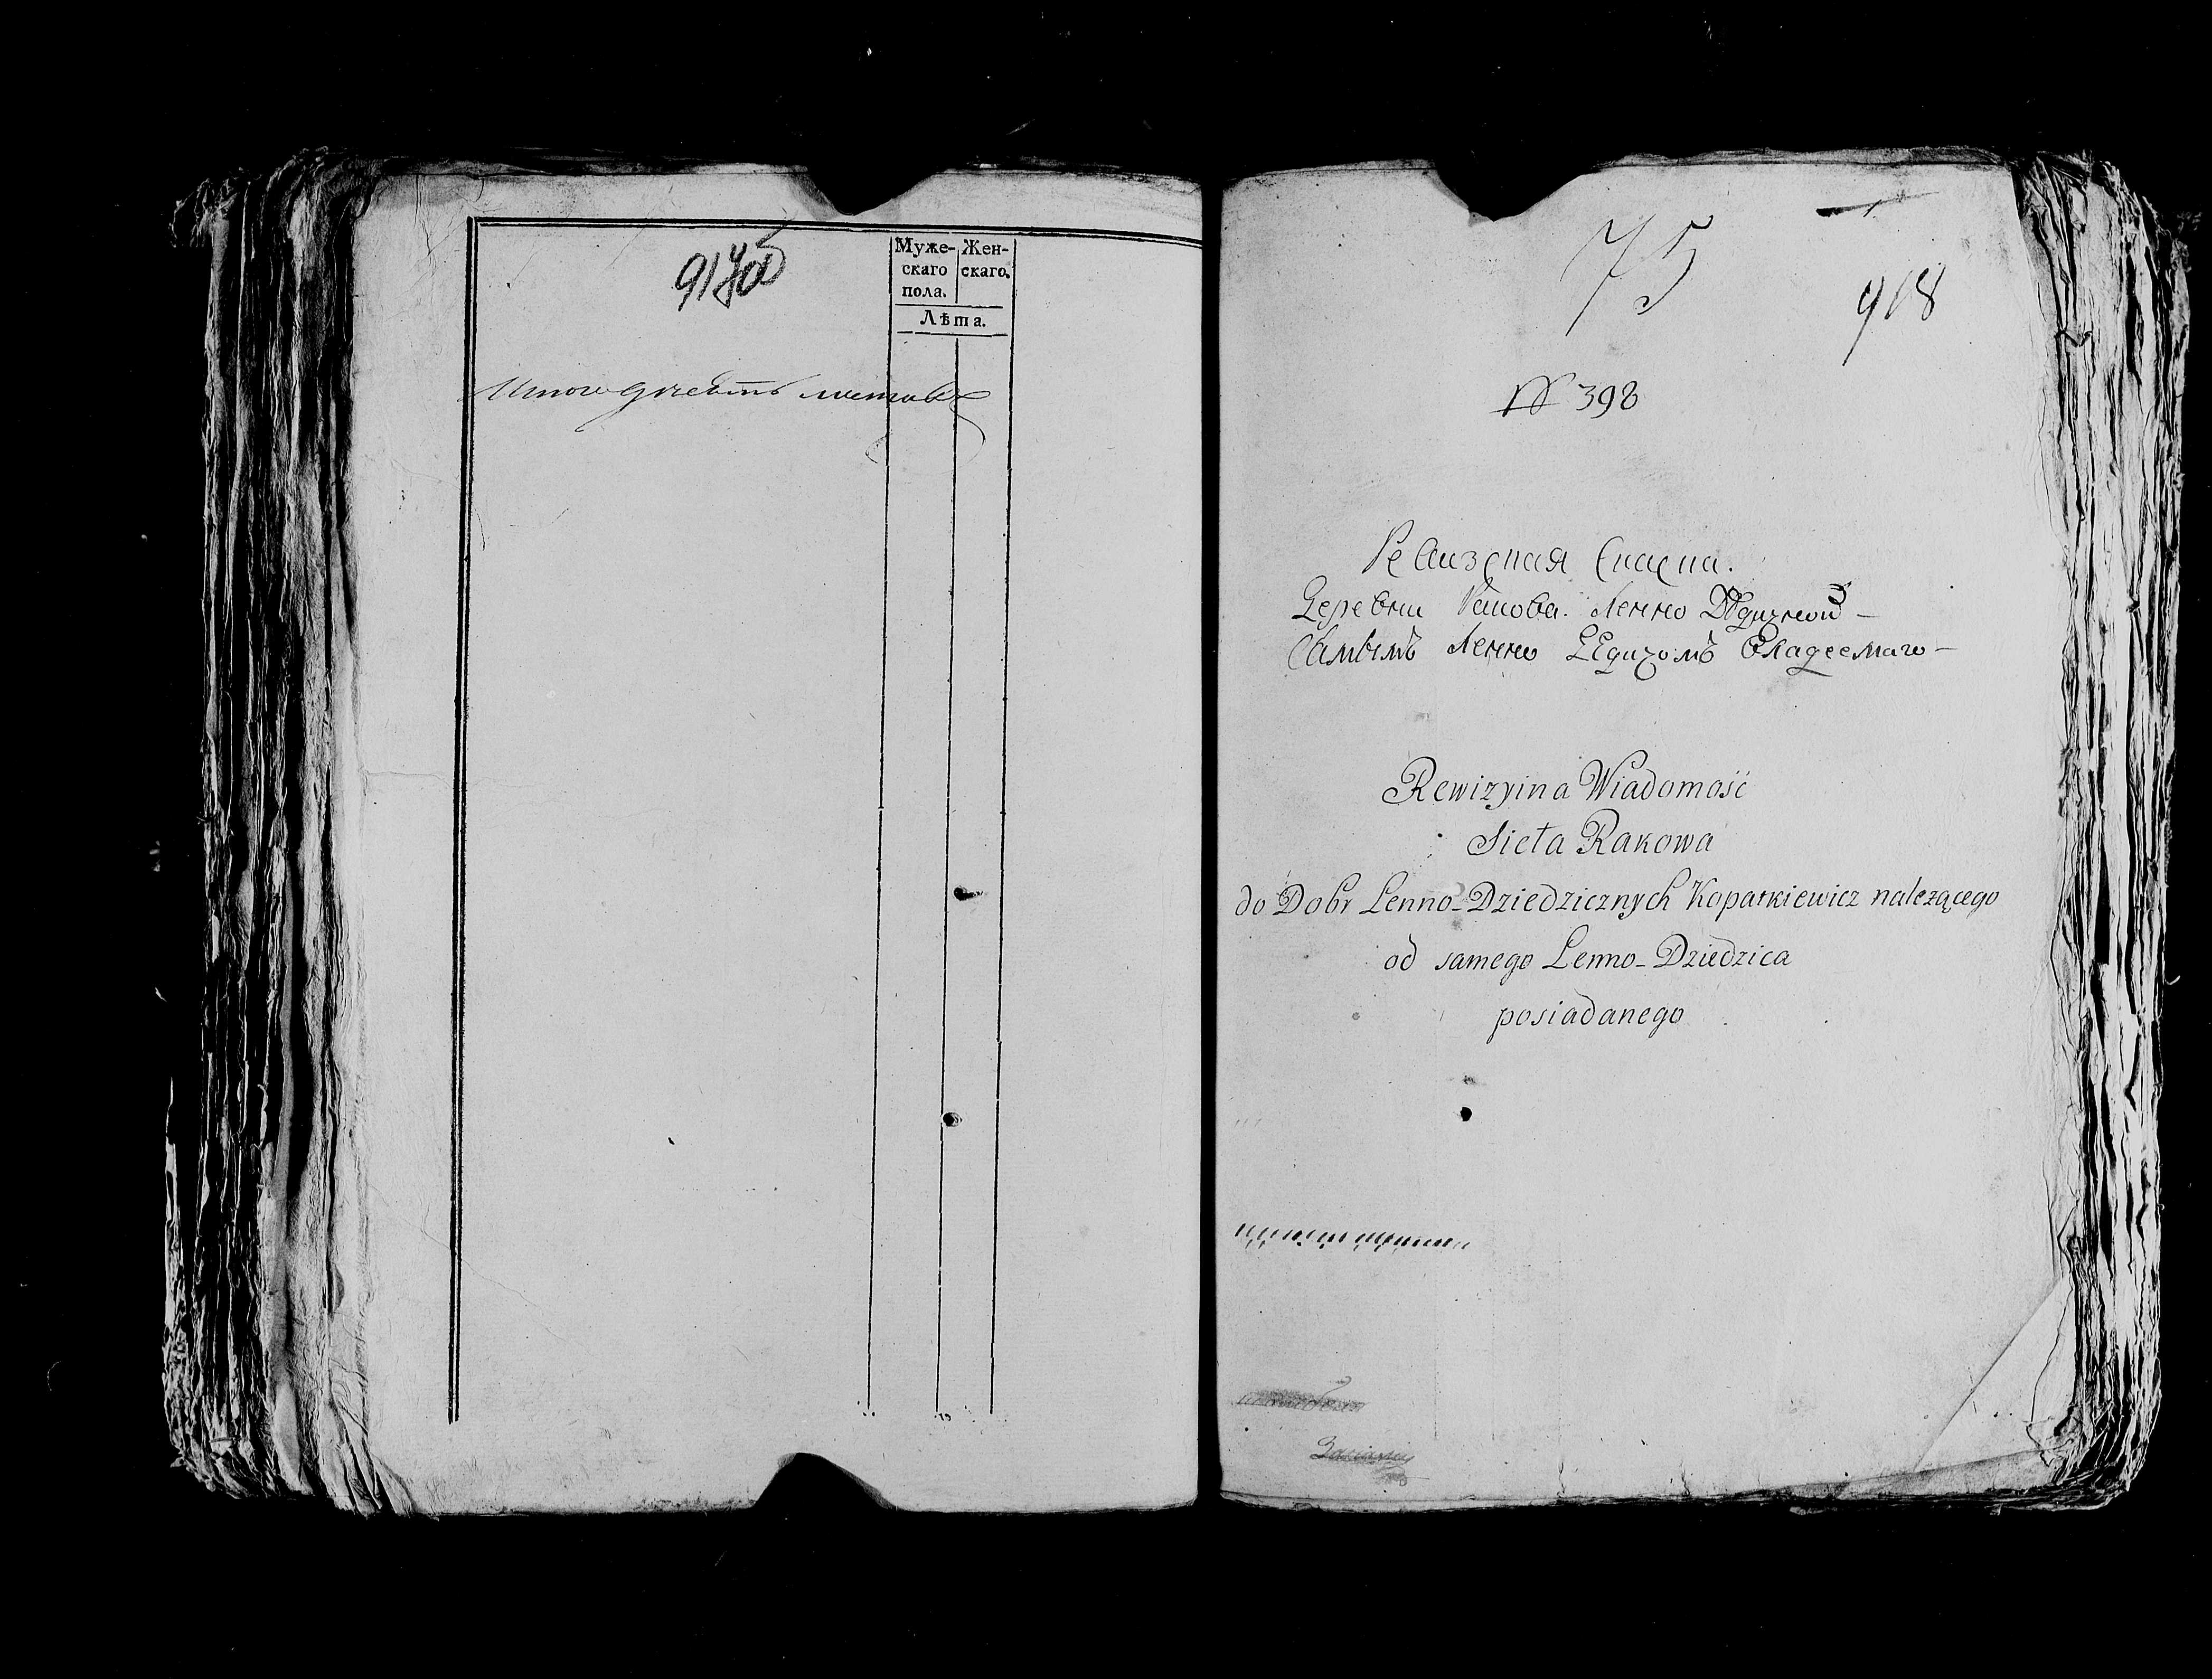 Муже- Жен-
скаго скаго.
пола.
Лѣта.
листовъ
75
918
№ 398
Ревизская Сказка.
Деревни Ракова. Ленно
Самымъ Ленно Владеемаго -
Rewizyina Wiadomość
Sieła Rakowa
do Dobr Lenno-Dziedzicznych Kopatkiewicz należącego
od samego Lenno-Dziedzica
posiadanego